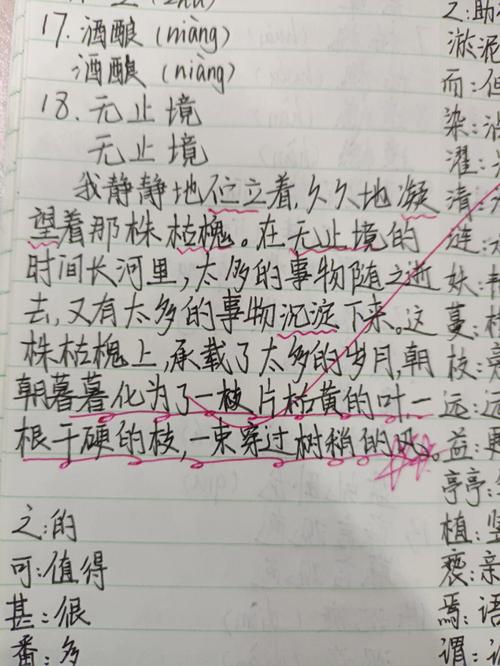 17. 酒酿(niàng)
酒酿(niàng)
18. 无止境
无止境
我静静地伫立着,久久地凝
望着那株枯槐。在无止境的
时间长河里,太多的事物随之逝
去,又有太多的事物沉淀下来。这
株枯槐上,承载了太多的岁月,朝
朝暮暮化为了一片枯黄的叶,一
根干硬的枝,一束穿过树稍的风。
之:的
可:值得
甚:很
番:多
之:助
淤泥
而:但
染:
濯:
清:
涟:
妖:
蔓:
枝:
远:
益:更
亭亭:
植:竖
亵:亲
焉:语
谓: